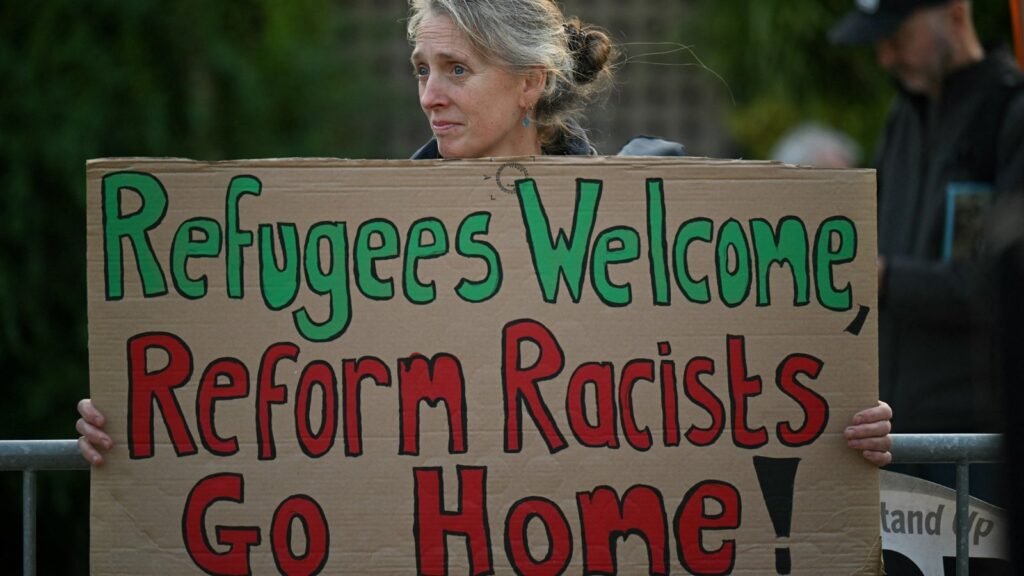 Refugees Welcome,
Reform Racists
Go Home!
tand up